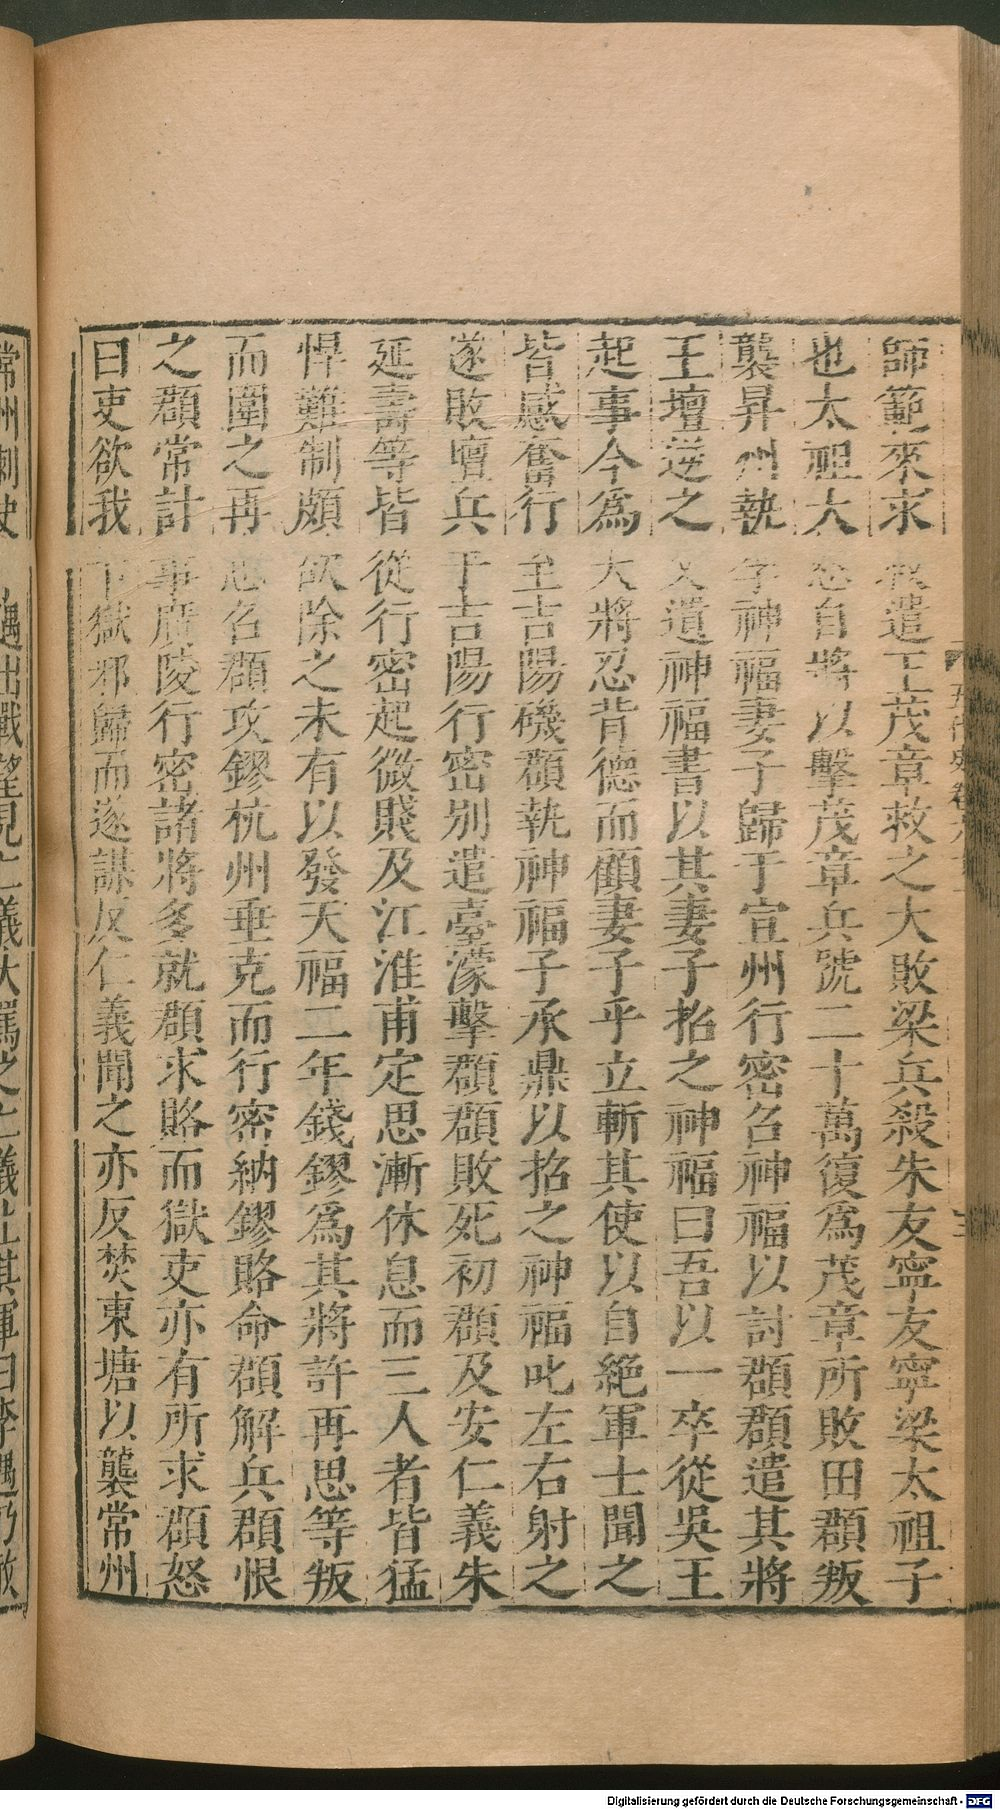 師範來求救遣王茂章救之大敗梁兵殺朱友寧友寧梁太祖子
也太祖大怒自將以擊茂章兵號二十萬復為茂章所敗田頵叛
襲昇州執李神福妻子歸于宣州行密召神福以討頵頵遣其將
王壇逆之又遺神福書以其妻子招之神福曰吾以一卒從吳王
起事今為大將忍背德而顧妻子乎立斬其使以自絕軍士聞之
皆感奮行至吉陽磯頵執神福子承鼎以招之神福叱左右射之
遂敗壇兵于吉陽行密別遣臺濛擊頵頵敗死初頵及安仁義朱
延壽等皆從行密起微賤及江淮甫定思漸休息而三人者皆猛
悍難制頗欲除之未有以發天福二年錢鏐為其將許再思等叛
而圍之再思召頵攻鏐杭州垂克而行密納鏐賂命頵解兵頵恨
之頵常計事廣陵行密諸將多就頵求賂而獄吏亦有所求頵怒
曰吏欲我下獄邪歸而遂謀反仁義聞之亦反焚東塘以襲常州
常州刺史 遇出戰望見仁義大罵之仁義止其軍曰李遇乃敢
五代史卷六
Digitalisierung gefördert durch die Deutsche Forschungsgemeinschaft - DFG